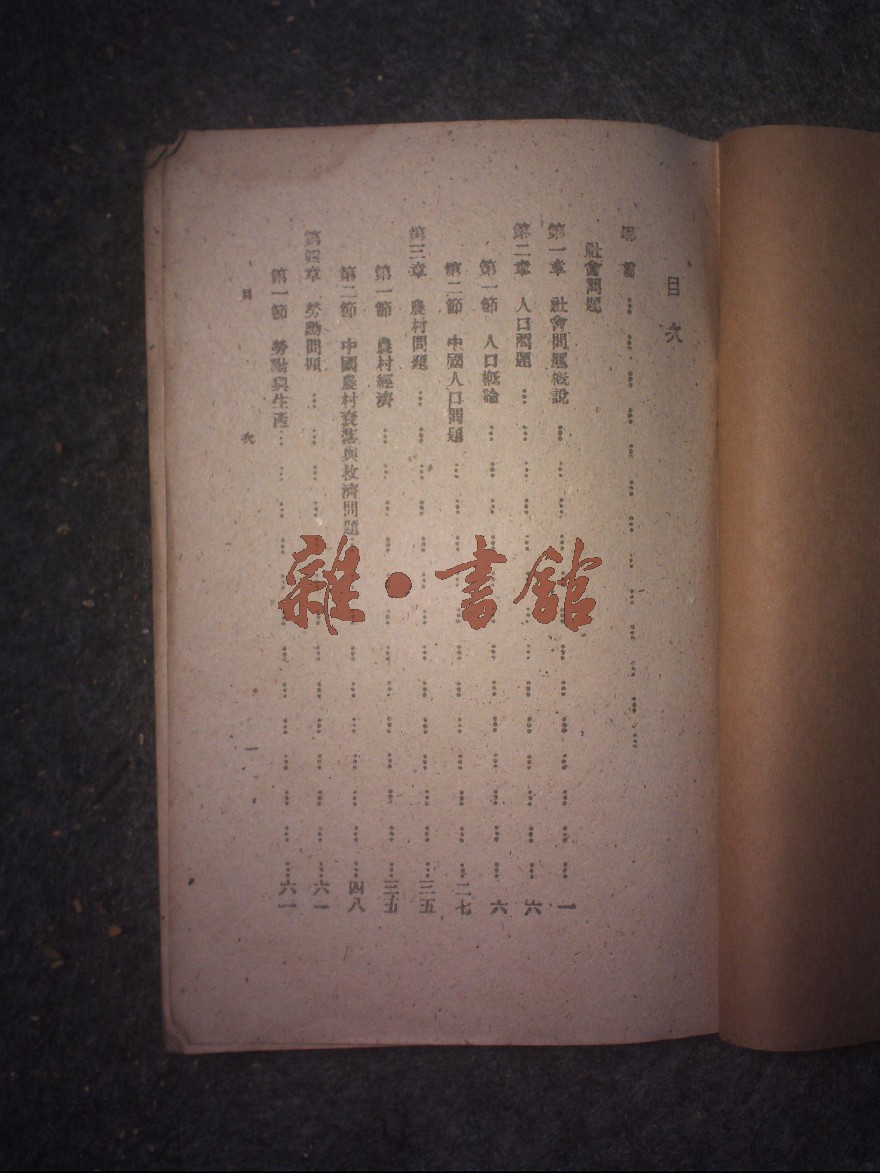 目次
導言
社會問題
第一章 社會問題概說……一
第二章 人口問題……六
第一節 人口概論……六
第二節 中國人口問題……二七
第三章 農村問題……三五
第一節 農村經濟……三五
第二節 中國農村衰落與救濟問題……四八
第四章 勞動問題……六一
第一節 勞動與生產……六一
目次 一
雜·書館